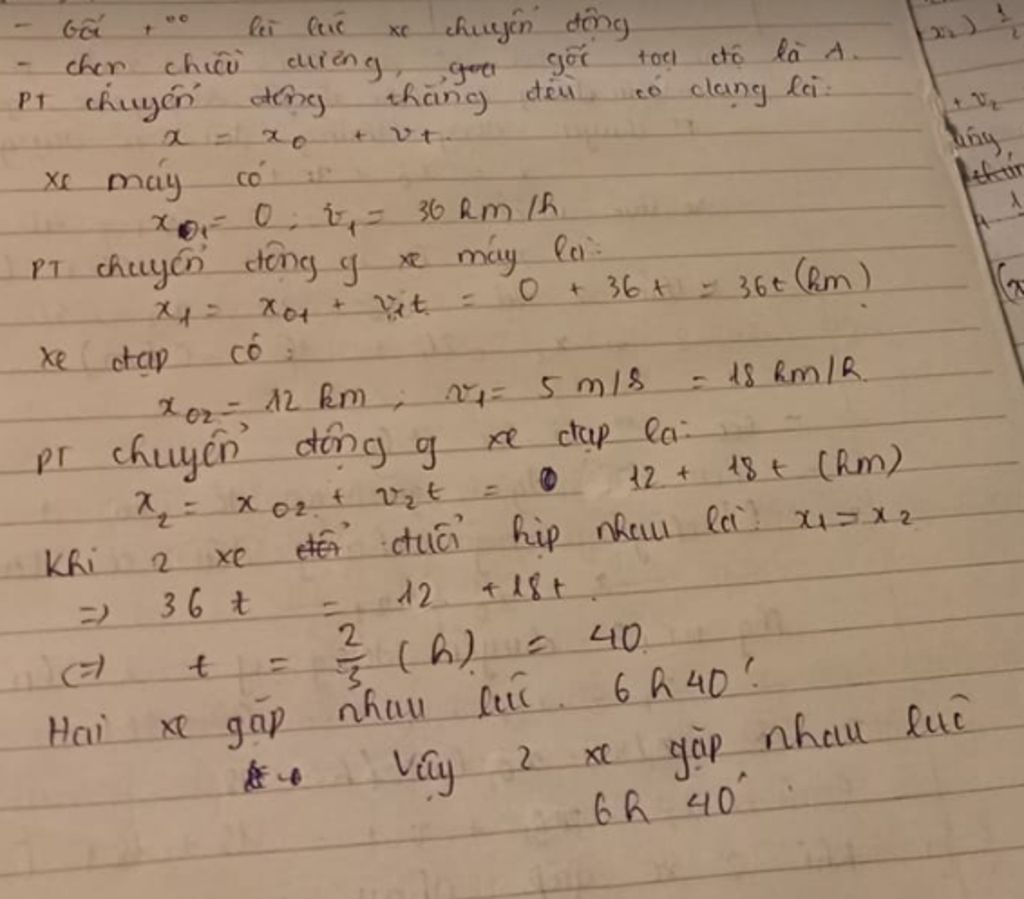 - Gốc t⁰⁰ là lúc xe chuyển động
- chọn chiều dương, gốc toạ độ là A.
PT chuyển động thẳng đều có dạng là:
x = x₀ + vt.
xe máy có :
x₀₁ = 0 ; v₁ = 36 km/h
PT chuyển động y xe máy là:
x₁ = x₀₁ + v₁t = 0 + 36t = 36t (km)
xe đạp có :
x₀₂ = 12 km ; v₁ = 5 m/s = 18 km/h
PT chuyển động y xe đạp là:
x₂ = x₀₂ + v₂t = 12 + 18t (km)
Khi 2 xe đuổi kịp nhau là: x₁ = x₂
=> 36t = 12 + 18t.
<=> t = 2/3 (h) = 40
Hai xe gặp nhau lúc 6h40'.
Vậy 2 xe gặp nhau lúc
6h 40'
x₂) 1/2
+ v₂